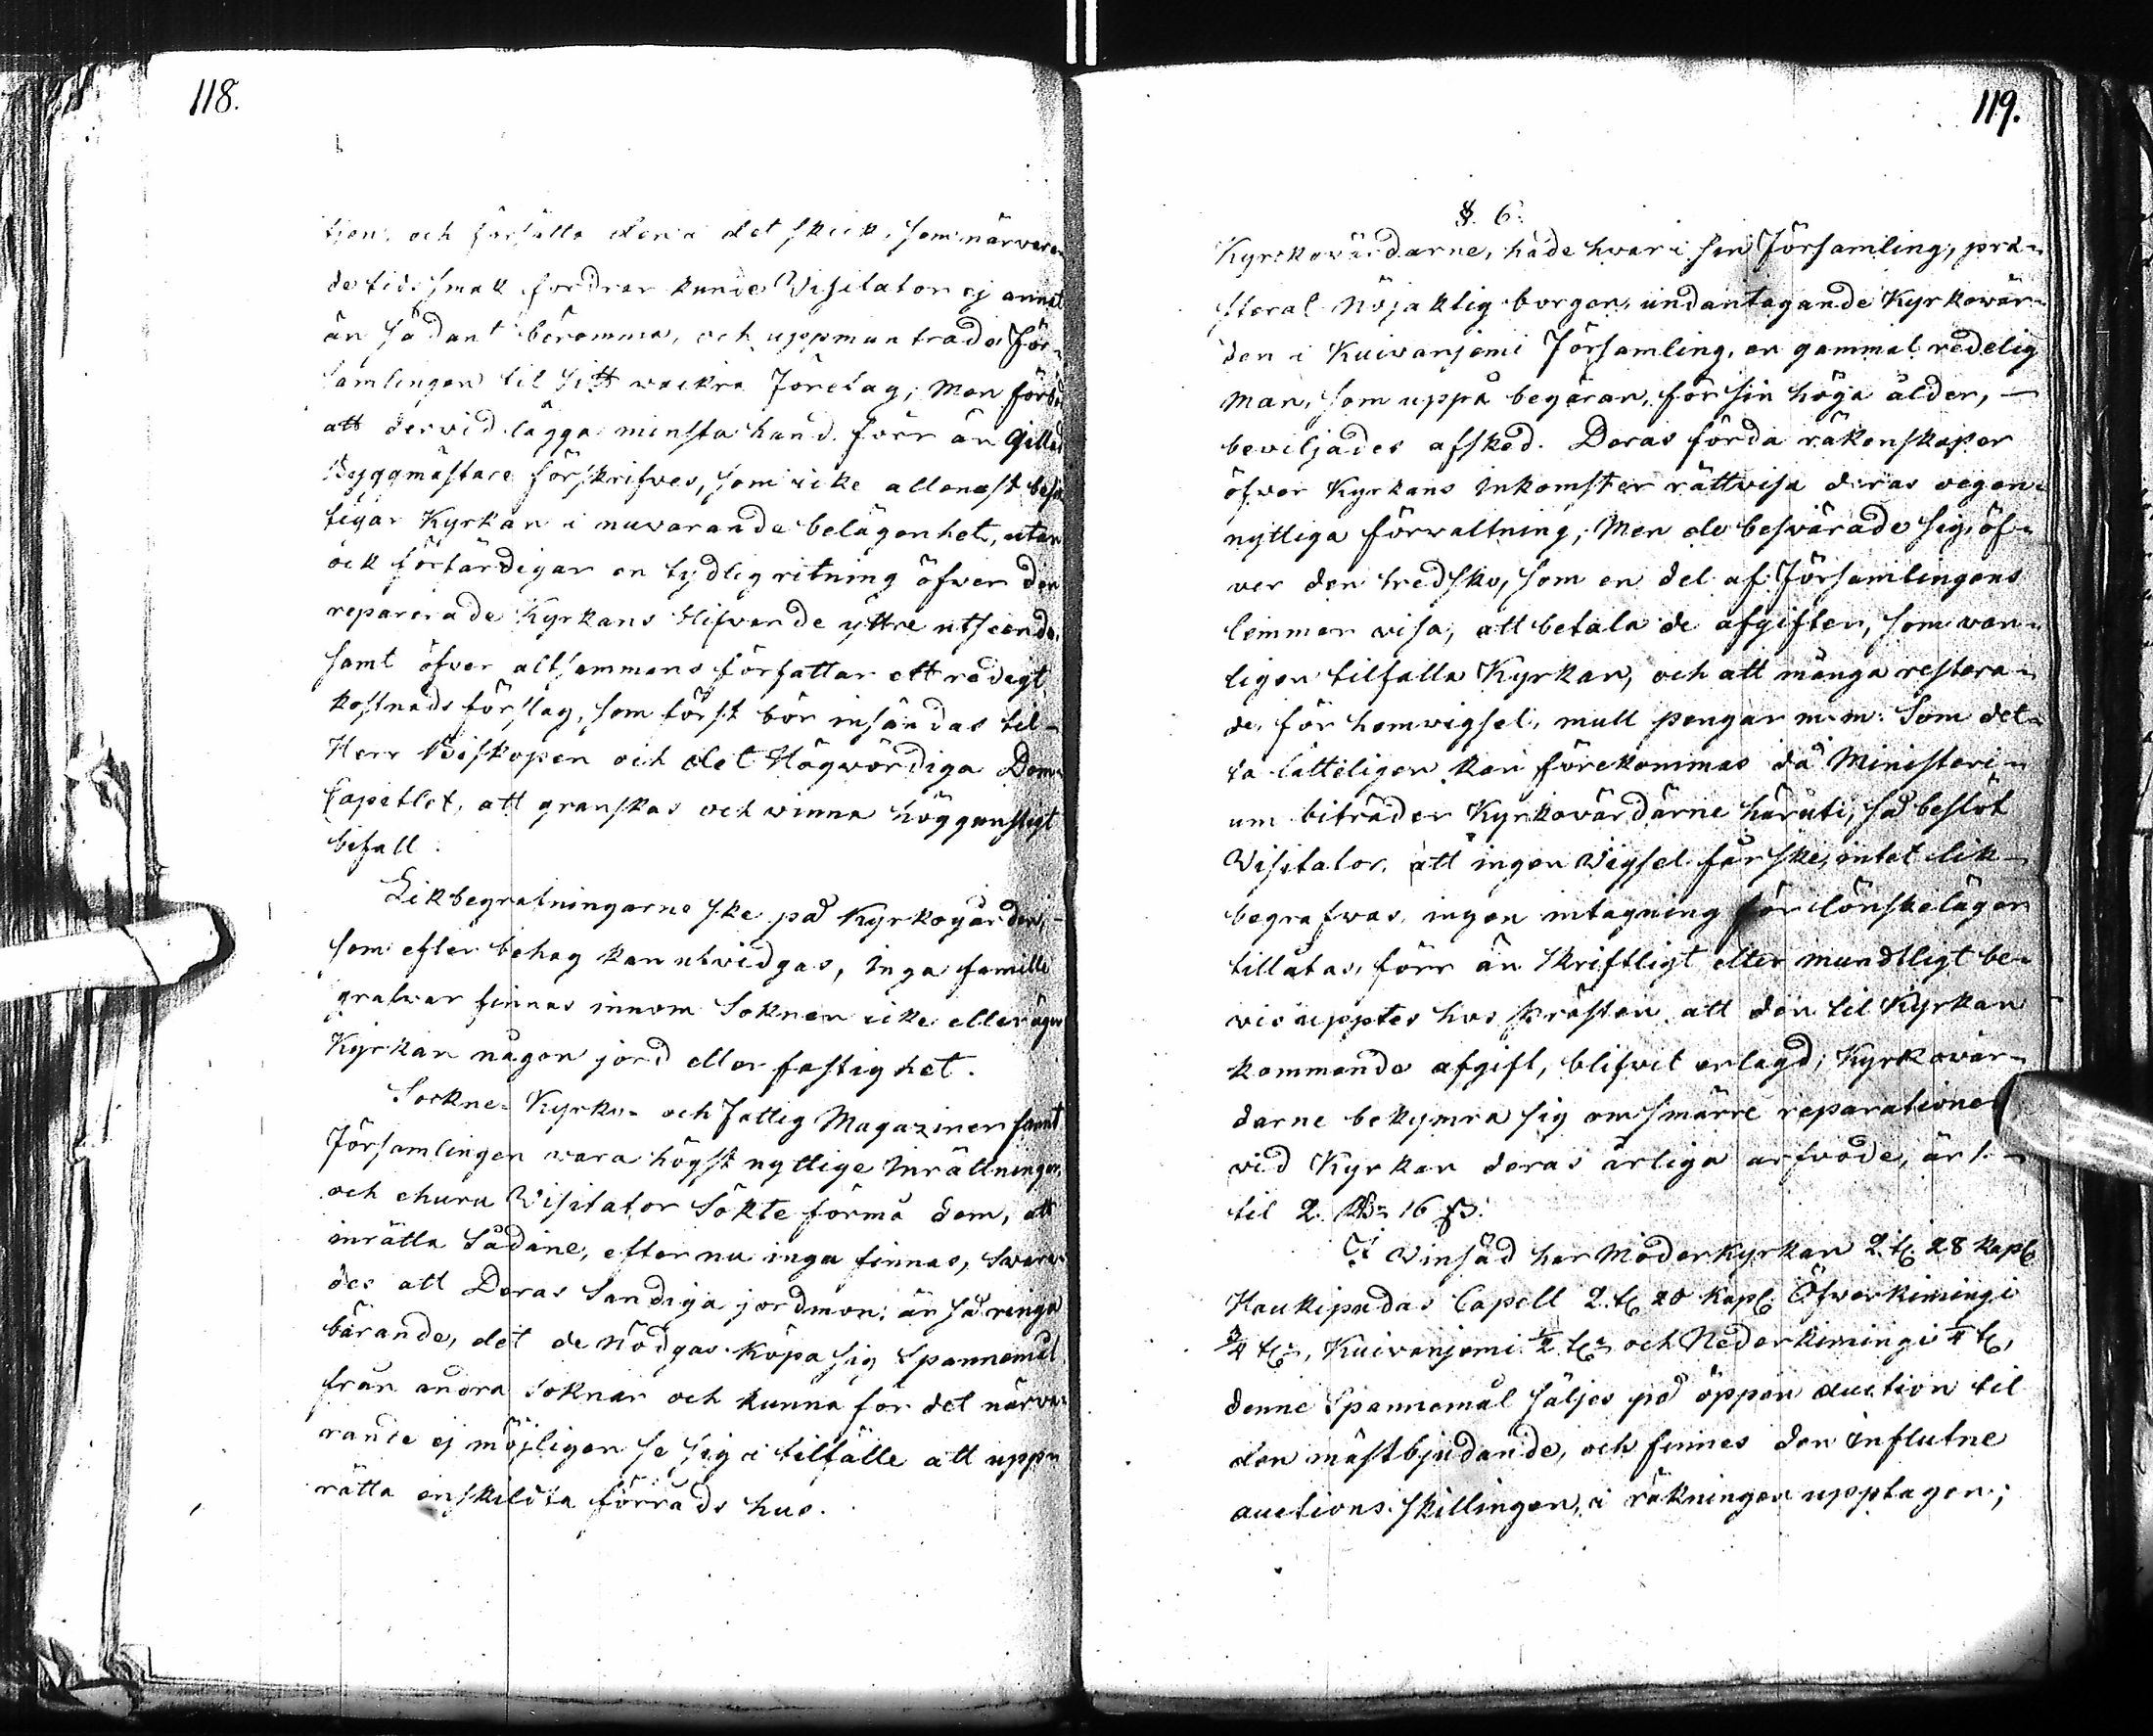 118.
tion, och försätta den i det skick, som närvaran-
de tids smak fordrar kunde Visitator ej annat
än sådant berömma, och uppmuntrade För-
samlingen til sitt wackra Företag; Men förböd
att dervid lägga minsta hand förr än Gillad
Byggmästare förskrifves, som icke allenast besik-
tigar Kyrkan i nuvarande belägenhet, utan
ock förfärdigar en tydlig ritning öfwer den
reparerade Kyrkans blifvande yttre utseende,
samt öfver altsammans författar ett redigt
kostnads förslag, som först bör insändas til
Herr Biskopen och det Högwördiga Dom-
Capitlet, att granskas och vinna höggunstigt
bifall.
Likbegrafningarne ske på Kyrkogården,
som efter behag kan utvidgas, Inga famille
grafwar finnas innom Soknen icke eller äger
Kyrkan någon jord eller fastighet.
Sockne- Kyrko- och Fattig Magaziner samt
Församlingen wara högst nyttige Inrättningar,
och ehuru Visitator sökte förmå dem, att
inrätta Sådane, efter nu inga finnas, Swara-
des att Deras Sandiga jordmon är så ringa
bärande, det de nödgas köpa sig Spannemål
från andra soknar och kunna för det närva-
rande ej möjligen se sig i tilfälle att upp-
rätta enskildta förråds hus.
119.
§. 6.
Kyrkovärdarne, både hvar i sin Församling, præ-
sterat nöjaktig borgen, undantagande Kyrkowär-
den i Kuivaniemi Församling, en gammal redelig
Man, som uppå begäran, för sin höga ålder, —
beviljades afsked. Deras förda räkenskaper
öfver Kyrkans Inkomster rättvisa deras oegen-
nyttiga förvaltning; Men de beswärade sig, öf-
ver den tredsko, som en del af Församlingens
lemmar visa, att betala de afgifter, som van-
ligen tilfalla Kyrkan, och att många restera-
de, för hemvigsel, mull pengar m. m. Som det-
ta lätteligen kan förekommas då Ministeri-
um biträder Kyrkovärdarne häruti, så beslöt
Visitator, att ingen Vigsel får ske, intet lik
begrafwas, ingen intagning för lönskelägen
tillåtas, förr än Skriftligt eller mundtligt be-
vis upptes hos Prästen, att den til Kyrkan
kommande afgift, blifvit erlagd; Kyrkovär-
darne bekymra sig om smärre reparationer
vid Kyrkan deras årliga arfvode, är 1
til 2. Rdr 16 ß.
I Vinsäd har Moderkyrkan 2. t. 28 kap.
Haukipudas Capell 2. t. 20 kap. Öfverkimingi
3/4 t., Kuivaniemi 1/2 t. och Nederkimingi 1/4 t.,
denne Spannemål säljes på öppen auction til
den mästbjudande, och finnes den Influtne
auctions skillingen, i räkningen upptagen;